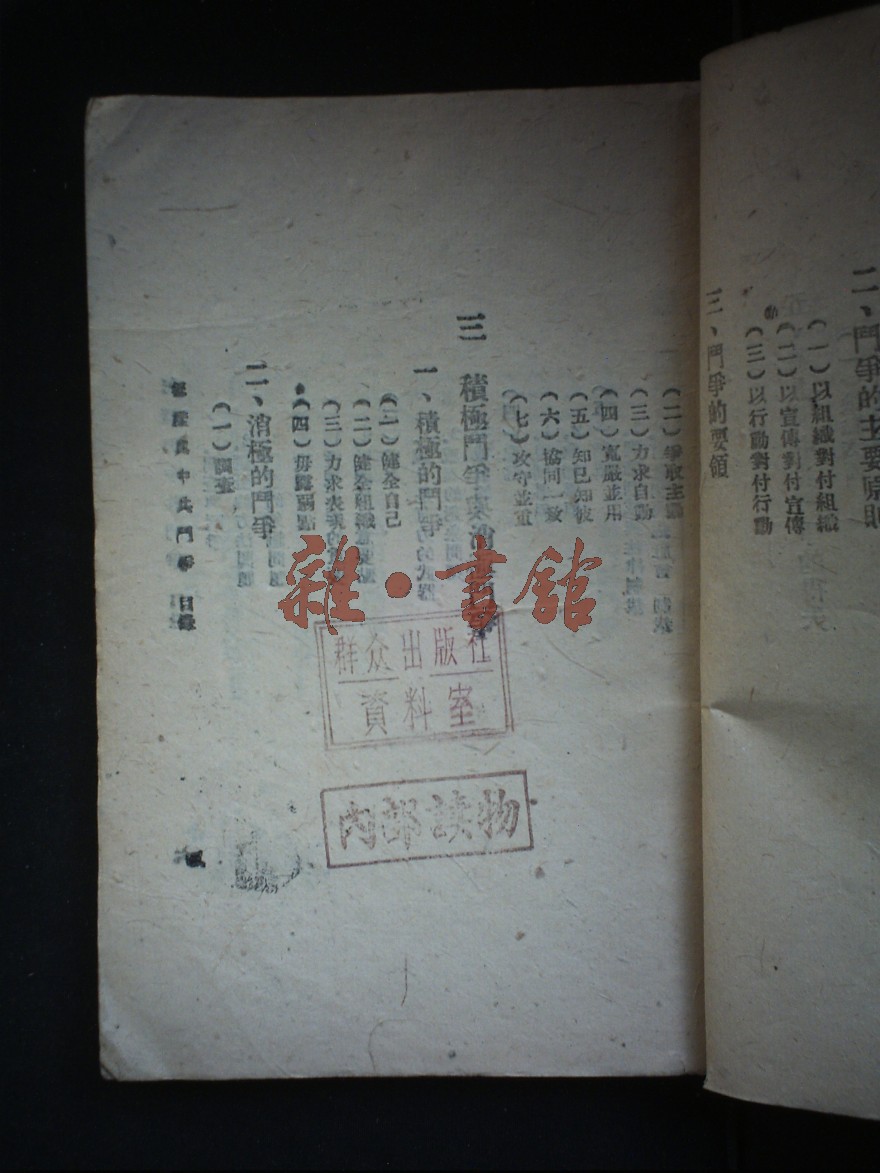 二、鬥爭的主要原則
(一)以組織對付組織
(二)以宣傳對付宣傳
(三)以行動對付行動
三、鬥爭的要領
(二)爭取主動
(三)力求自動
(四)寬嚴並用
(五)知己知彼
(六)協同一致
(七)攻守並重
三 積極鬥爭
一、積極的鬥爭
(一)健全自己
(二)健全組織
(三)力求表現
(四)毋露弱點
二、消極的鬥爭
(一)調查
中共鬥爭 目錄
雜·書館
群众出版社
資料室
內部读物